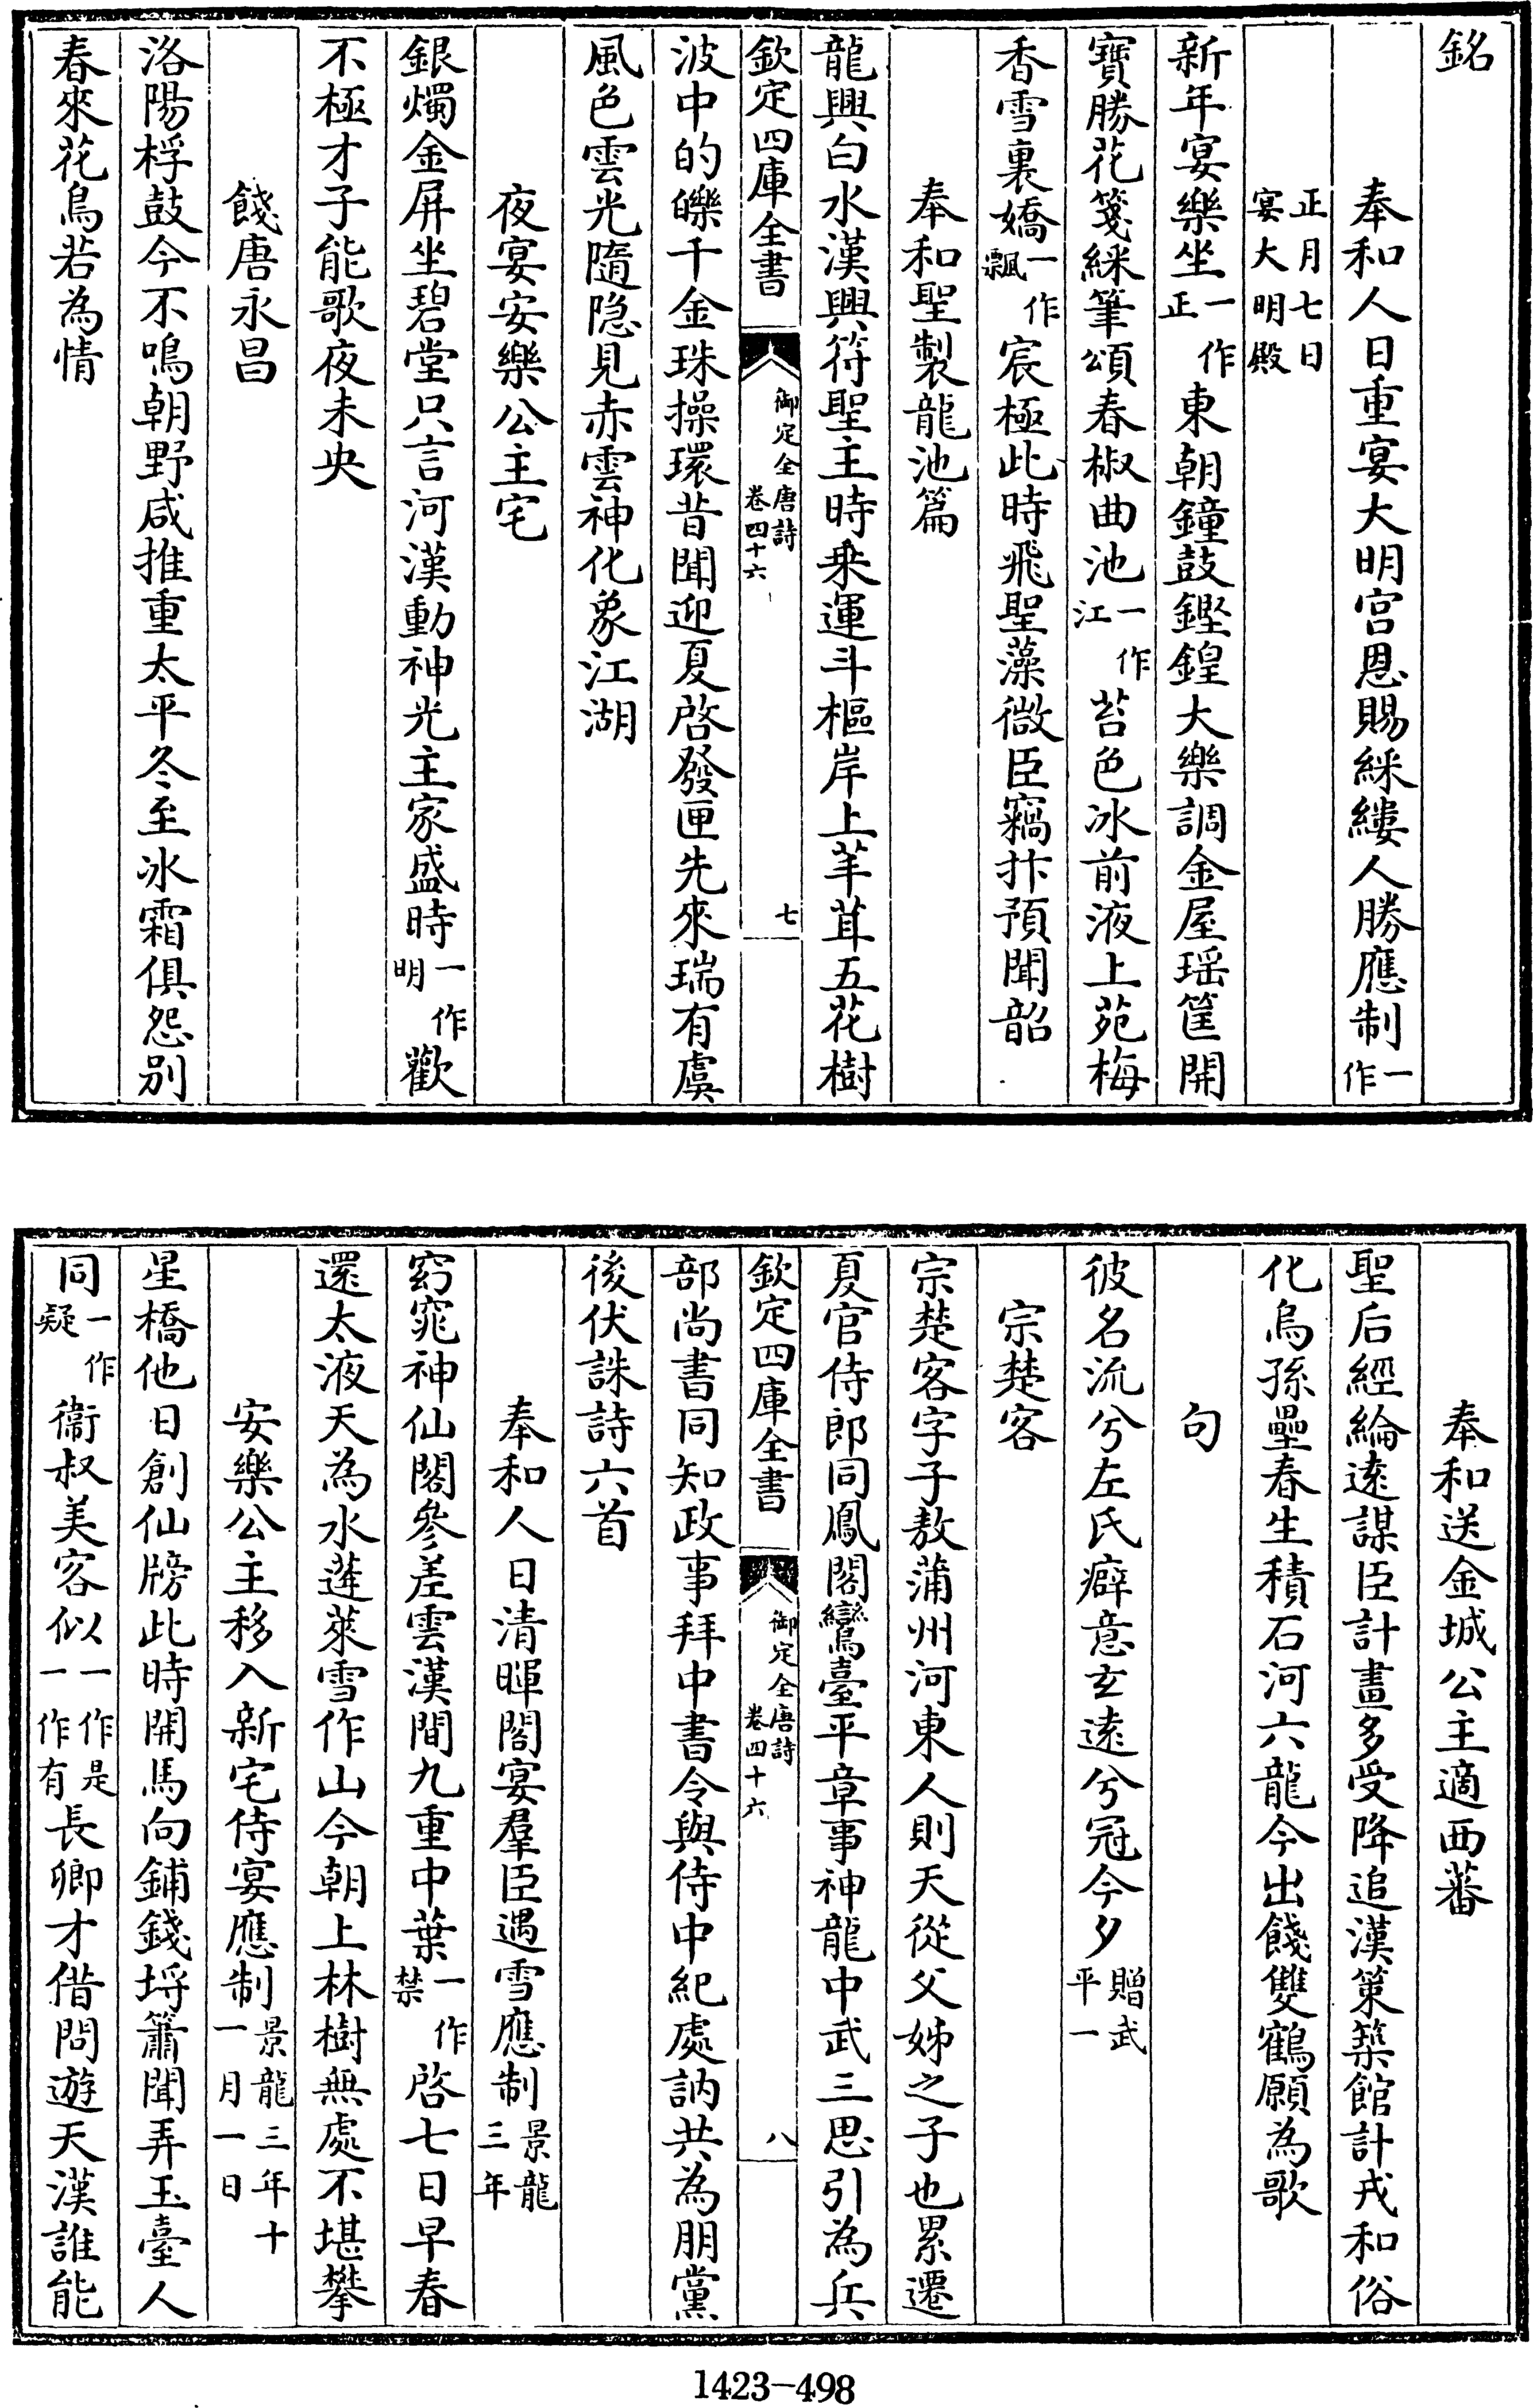 銘
奉和人日重宴大明宫恩賜綵縷人勝應制一作
正月七日宴大明殿
新年宴樂坐一作正東朝鐘鼓鏗鍠大樂調金屋瑶筐開
寶勝花箋綵筆頌春椒曲池一作江苔色冰前液上苑梅
香雪裏嬌一作飄宸極此時飛聖藻微臣竊抃預聞韶
奉和聖製龍池篇
龍興白水漢興符聖主時乘運斗樞岸上芊茸五花樹
欽定四庫全書
御定全唐詩卷四十六
七
波中的皪千金珠操環昔聞迎夏啓發匣先來瑞有虞
風色雲光隨隐見赤雲神化象江湖
夜宴安樂公主宅
銀燭金屏坐碧堂只言河漢動神光主家盛時一作明歡
不極才子能歌夜未央
餞唐永昌
洛陽桴鼓今不鳴朝野咸推重太平冬至冰霜俱怨别
春來花鳥若為情
奉和送金城公主適西蕃
聖后經綸遠謀臣計畫多受降追漢策築館計戎和俗
化烏孫壘春生積石河六龍今出餞雙鶴願為歌
句
彼名流兮左氏癖意玄遠兮冠今夕贈武平一
宗楚客
宗楚客字子敖蒲州河東人則天從父姊之子也累遷
夏官侍郎同鳳閣鸞臺平章事神龍中武三思引為兵
欽定四庫全書
御定全唐詩卷四十六
八
部尚書同知政事拜中書令與侍中紀處訥共為朋黨
後伏誅詩六首
奉和人日清暉閣宴羣臣遇雪應制景龍三年
窈窕神仙閣參差雲漢間九重中葉一作禁啓七日早春
還太液天為水蓬萊雪作山今朝上林樹無處不堪攀
安樂公主移入新宅侍宴應制景龍三年十一月一日
星橋他日創仙牓此時開馬向鋪錢埒簫聞弄玉臺人
同一作疑衞叔美客似一作是一作有長卿才借問遊天漢誰能
1423-498